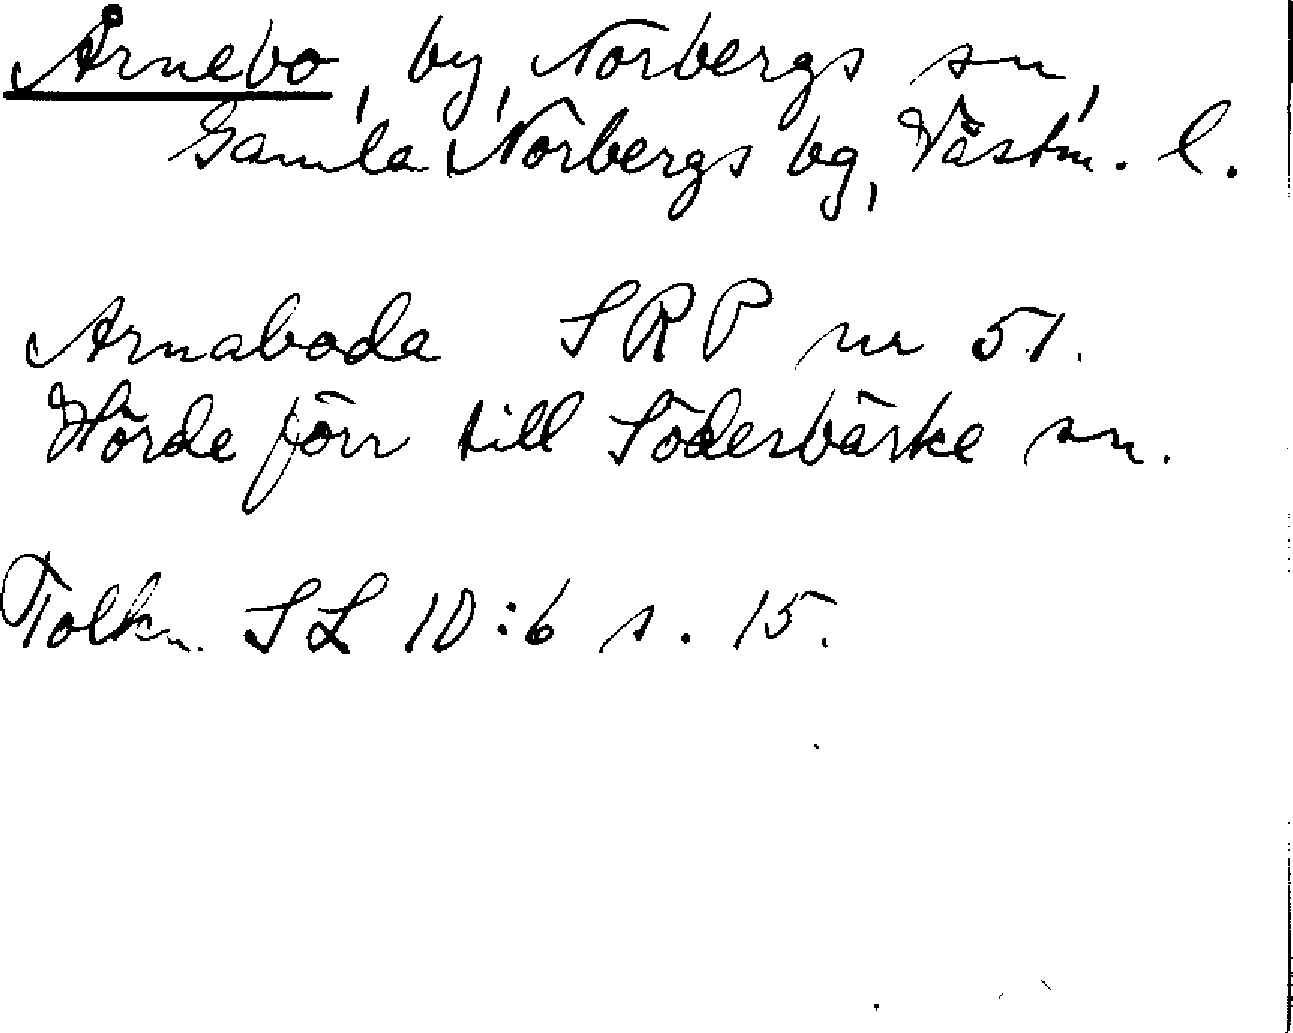 Årnebo, by, Norbergs sn,
Gamla Norbergs bg, Västm. l.
Arnaboda SRP nr 51.
Hörde förr till Söderbärke sn.
Tolkn. SL 10:6 s. 15.